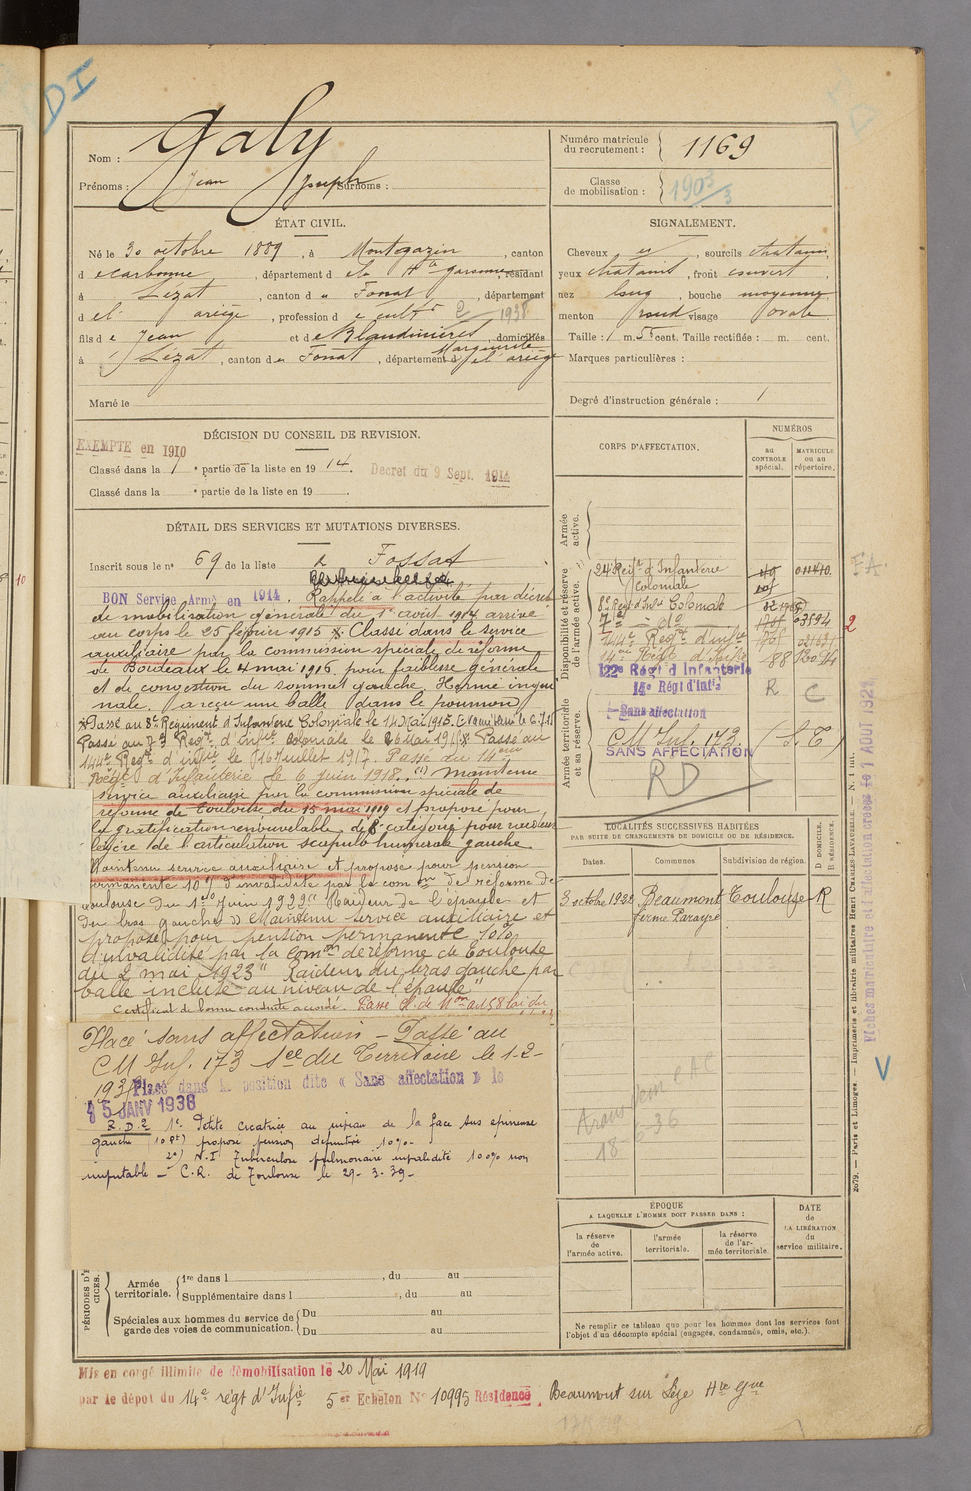 DI
Nom : Galy
Prénoms : Jean Joseph Surnoms :
Numéro matricule du recrutement : 1169
Classe de mobilisation : 1903/3
ÉTAT CIVIL.
Né le 30 octobre 1889, à Montgazin, canton
de Carbonne, département de la Hte Garonne, résidant
à Lezat, canton du Fossat, département
de l' ariège, profession de cult r 2 1938
fils de Jean et de Blandinières Marguerite domiciliés
à Lézat, canton du Fossat, département de l'ariège
Marié le
SIGNALEMENT.
Cheveux et, sourcils chatains
yeux chatains, front couvert,
nez long, bouche moyenne,
menton rond visage ovale.
Taille : 1 m. 55 cent. Taille rectifiée : m. cent.
Marques particulières :
Degré d'instruction générale : 1
DÉCISION DU CONSEIL DE REVISION.
EXEMPTE en 1910
Classé dans la 1 e partie de la liste en 1914. Decret du 9 Sept. 1914
Classé dans la e partie de la liste en 19 .
DÉTAIL DES SERVICES ET MUTATIONS DIVERSES.
Inscrit sous le n° 69 de la liste Fossat
BON Service Armé en 1914. Rappelé à l'activité par décret
de mobilisation générale du 1er août 1914 arrivé
au corps le 25 février 1915 x. Classé dans le service
auxiliaire par la commission spéciale de réforme
de Bordeaux le 4 mai 1916 pour faiblesse générale
et de convection du sommet gauche. Hernie ingui
nale. a reçu une balle dans le poumon)
x Passé au 8e Régiment d'Infanterie Coloniale le
Passé au 7e Regt d'infie coloniale le 26 Mai 1918 Passé au
144e Regt d'infie le 16 juillet 1917. Passé au 14eme
Régt d'Infanterie le 6 juin 1918. (1) Maintenu
service auxiliaire par la commission spéciale de
réforme de Toulouse du 15 mai 1919 et proposé pour
la gratification renouvelable de 8e catégorie pour raideur
legère de l'articulation scapulo humerale gauche
Maintenu service auxiliaire et proposé pour pension
permanente 10% d'invalidité par la comon de réforme de
Toulouse du 1er Juin 1922 "Raideur de l'épaule et
du bras gauches" Maintenu service auxiliaire et
proposé pour pension permanente 10%
d'invalidité par la comon de réforme de Toulouse
du 2 mai 1923 "Raideur du bras gauche par
balle incluse au niveau de l'épaule"
Certificat de bonne conduite accordé. Passé Cl. de Mon art 58 loi du
Placé sans affectation - Passé au
CM Inf. 173 Sce du Territoire le 1-2-
193 Placé dans la position dite « Sans affectation » le
15 JANV 1938
R.D.2 1°. Petite cicatrice au niveau de la face sus épineuse
gauche propose pension définitive 10%-
2°) N.I Tuberculose pulmonaire invalidité 100% non
imputable - C.R. de Toulouse le 29-3-39-
PÉRIODES D'EXERCICES.
Armée territoriale. 1re dans l , du au
Supplémentaire dans l , du au
Spéciales aux hommes du service de garde des voies de communication. Du au
Du au
CORPS D'AFFECTATION.
NUMÉROS
au CONTROLE spécial.
MATRICULE ou au répertoire.
Armée active.
Disponibilité et réserve de l'armée active.
24e Regt d'Infanterie Coloniale 011410.
8e Regt d'Infie Coloniale
7e - do - 03594 2
144e Regt d'infie
14me Régt d'Infie 88
122e Régt d'Infanterie
14e Régt d'Infie R C
Sans affectation
Armée territoriale et sa réserve.
CM Inf. 173 (S.T)
SANS AFFECTATION
RD
LOCALITÉS SUCCESSIVES HABITÉES
PAR SUITE DE CHANGEMENTS DE DOMICILE OU DE RÉSIDENCE.
D DOMICILE. R RÉSIDENCE.
Dates. Communes Subdivision de région.
3 octobre 1928 Beaumont Toulouse R
ferme
18-6-36
ÉPOQUE
A LAQUELLE L'HOMME DOIT PASSER DANS :
la réserve de l'armée active.
l'armée territoriale.
la réserve de l'armée territoriale
DATE de LA LIBÉRATION du service militaire.
Ne remplir ce tableau que pour les hommes dont les services font
l'objet d'un décompte spécial (engagés, condamnés, omis, etc.).
Mis en congé illimité de démobilisation le 20 Mai 1919
par le dépôt du 14e régt d'Infie 5er Echelon N° 10995 Résidence. Beaumont sur Lèze Hte Gne
FA
Fiches matriculaire et d'affectation créées le 1 AOUT 1921
2079. — Paris et Limoges. — Imprimerie et librairie militaires Henri CHARLES-LAVAUZELLE.
10